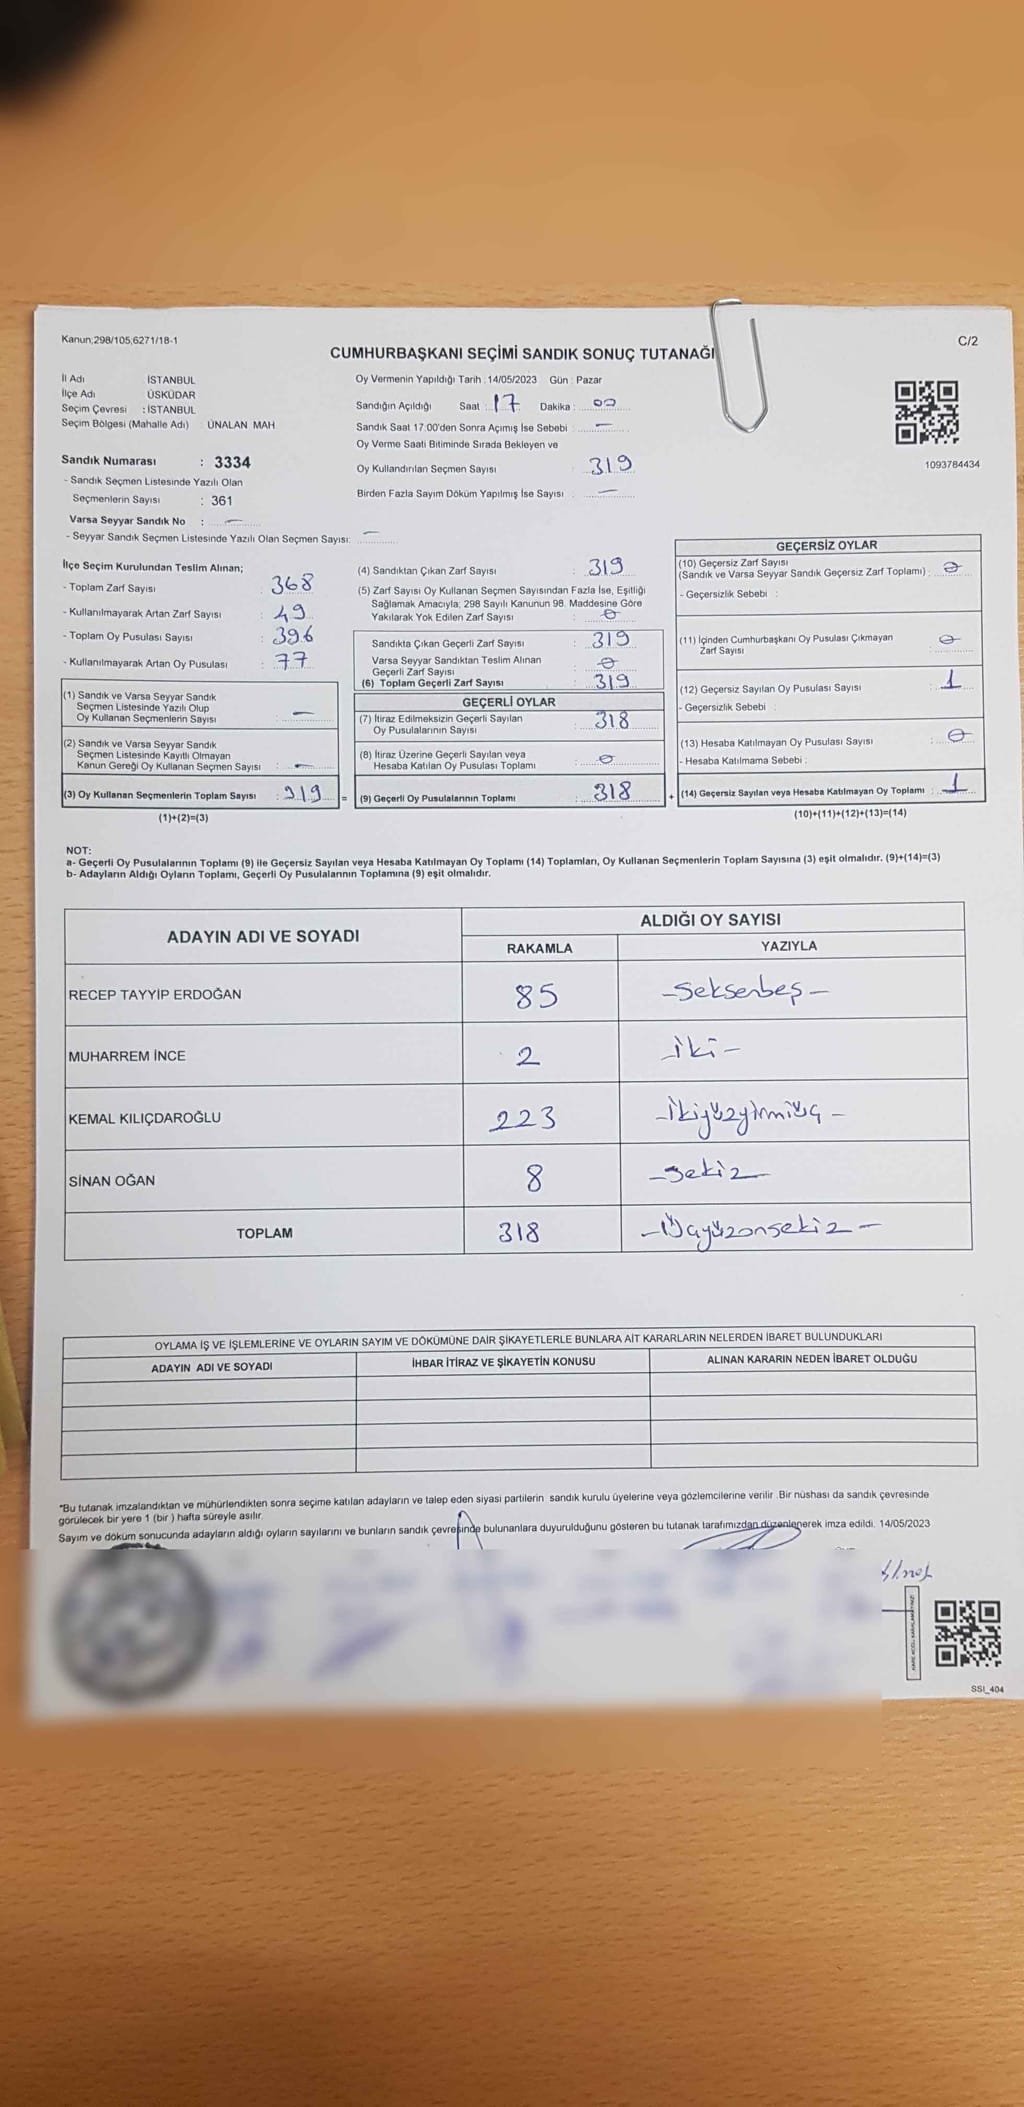 Kanun;298/105,6271/18-1
C/2
CUMHURBAŞKANI SEÇİMİ SANDIK SONUÇ TUTANAĞI
İl Adı İSTANBUL
İlçe Adı ÜSKÜDAR
Seçim Çevresi : İSTANBUL
Seçim Bölgesi (Mahalle Adı) ÜNALAN MAH
Sandık Numarası : 3334
- Sandık Seçmen Listesinde Yazılı Olan
Seçmenlerin Sayısı : 361
Varsa Seyyar Sandık No : —
- Seyyar Sandık Seçmen Listesinde Yazılı Olan Seçmen Sayısı: —
Oy Vermenin Yapıldığı Tarih :14/05/2023 Gün : Pazar
Sandığın Açıldığı Saat : 17 Dakika : 00
Sandık Saat 17:00'den Sonra Açımış İse Sebebi : —
Oy Verme Saati Bitiminde Sırada Bekleyen ve
Oy Kullandırılan Seçmen Sayısı : 319
Birden Fazla Sayım Döküm Yapılmış İse Sayısı : —
1093784434
İlçe Seçim Kurulundan Teslim Alınan;
- Toplam Zarf Sayısı : 368
- Kullanılmayarak Artan Zarf Sayısı : 49
- Toplam Oy Pusulası Sayısı : 396
- Kullanılmayarak Artan Oy Pusulası : 77
(1) Sandık ve Varsa Seyyar Sandık
Seçmen Listesinde Yazılı Olup
Oy Kullanan Seçmenlerin Sayısı : —
(2) Sandık ve Varsa Seyyar Sandık
Seçmen Listesinde Kayıtlı Olmayan
Kanun Gereği Oy Kullanan Seçmen Sayısı : —
(3) Oy Kullanan Seçmenlerin Toplam Sayısı : 319 =
(1)+(2)=(3)
(4) Sandıktan Çıkan Zarf Sayısı : 319
(5) Zarf Sayısı Oy Kullanan Seçmen Sayısından Fazla İse, Eşitliği
Sağlamak Amacıyla; 298 Sayılı Kanunun 98. Maddesine Göre
Yakılarak Yok Edilen Zarf Sayısı : 0
Sandıkta Çıkan Geçerli Zarf Sayısı : 319
Varsa Seyyar Sandıktan Teslim Alınan
Geçerli Zarf Sayısı : 0
(6) Toplam Geçerli Zarf Sayısı : 319
GEÇERLİ OYLAR
(7) İtiraz Edilmeksizin Geçerli Sayılan
Oy Pusulalarının Sayısı : 318
(8) İtiraz Üzerine Geçerli Sayılan veya
Hesaba Katılan Oy Pusulası Toplamı : 0
(9) Geçerli Oy Pusulalarının Toplamı : 318 +
GEÇERSİZ OYLAR
(10) Geçersiz Zarf Sayısı
(Sandık ve Varsa Seyyar Sandık Geçersiz Zarf Toplamı) : 0
- Geçersizlik Sebebi :
(11) İçinden Cumhurbaşkanı Oy Pusulası Çıkmayan
Zarf Sayısı : 0
(12) Geçersiz Sayılan Oy Pusulası Sayısı : 1
- Geçersizlik Sebebi :
(13) Hesaba Katılmayan Oy Pusulası Sayısı : 0
- Hesaba Katılmama Sebebi :
(14) Geçersiz Sayılan veya Hesaba Katılmayan Oy Toplamı : 1
(10)+(11)+(12)+(13)=(14)
NOT:
a- Geçerli Oy Pusulalarının Toplamı (9) ile Geçersiz Sayılan veya Hesaba Katılmayan Oy Toplamı (14) Toplamları, Oy Kullanan Seçmenlerin Toplam Sayısına (3) eşit olmalıdır. (9)+(14)=(3)
b- Adayların Aldığı Oyların Toplamı, Geçerli Oy Pusulalarının Toplamına (9) eşit olmalıdır.
ADAYIN ADI VE SOYADI ALDIĞI OY SAYISI
RAKAMLA YAZIYLA
RECEP TAYYİP ERDOĞAN 85 -Seksenbeş-
MUHARREM İNCE 2 -iki-
KEMAL KILIÇDAROĞLU 223 -İkiyüzyirmiüç-
SİNAN OĞAN 8 -sekiz-
TOPLAM 318 -Üçyüzonsekiz-
OYLAMA İŞ VE İŞLEMLERİNE VE OYLARIN SAYIM VE DÖKÜMÜNE DAİR ŞİKAYETLERLE BUNLARA AİT KARARLARIN NELERDEN İBARET BULUNDUKLARI
ADAYIN ADI VE SOYADI İHBAR İTİRAZ VE ŞİKAYETİN KONUSU ALINAN KARARIN NEDEN İBARET OLDUĞU
*Bu tutanak imzalandıktan ve mühürlendikten sonra seçime katılan adayların ve talep eden siyasi partilerin sandık kurulu üyelerine veya gözlemcilerine verilir. Bir nüshası da sandık çevresinde
görülecek bir yere 1 (bir ) hafta süreyle asılır.
Sayım ve döküm sonucunda adayların aldığı oyların sayılarını ve bunların sandık çevresinde bulunanlara duyurulduğunu gösteren bu tutanak tarafımızdan düzenlenerek imza edildi. 14/05/2023
SSI_404